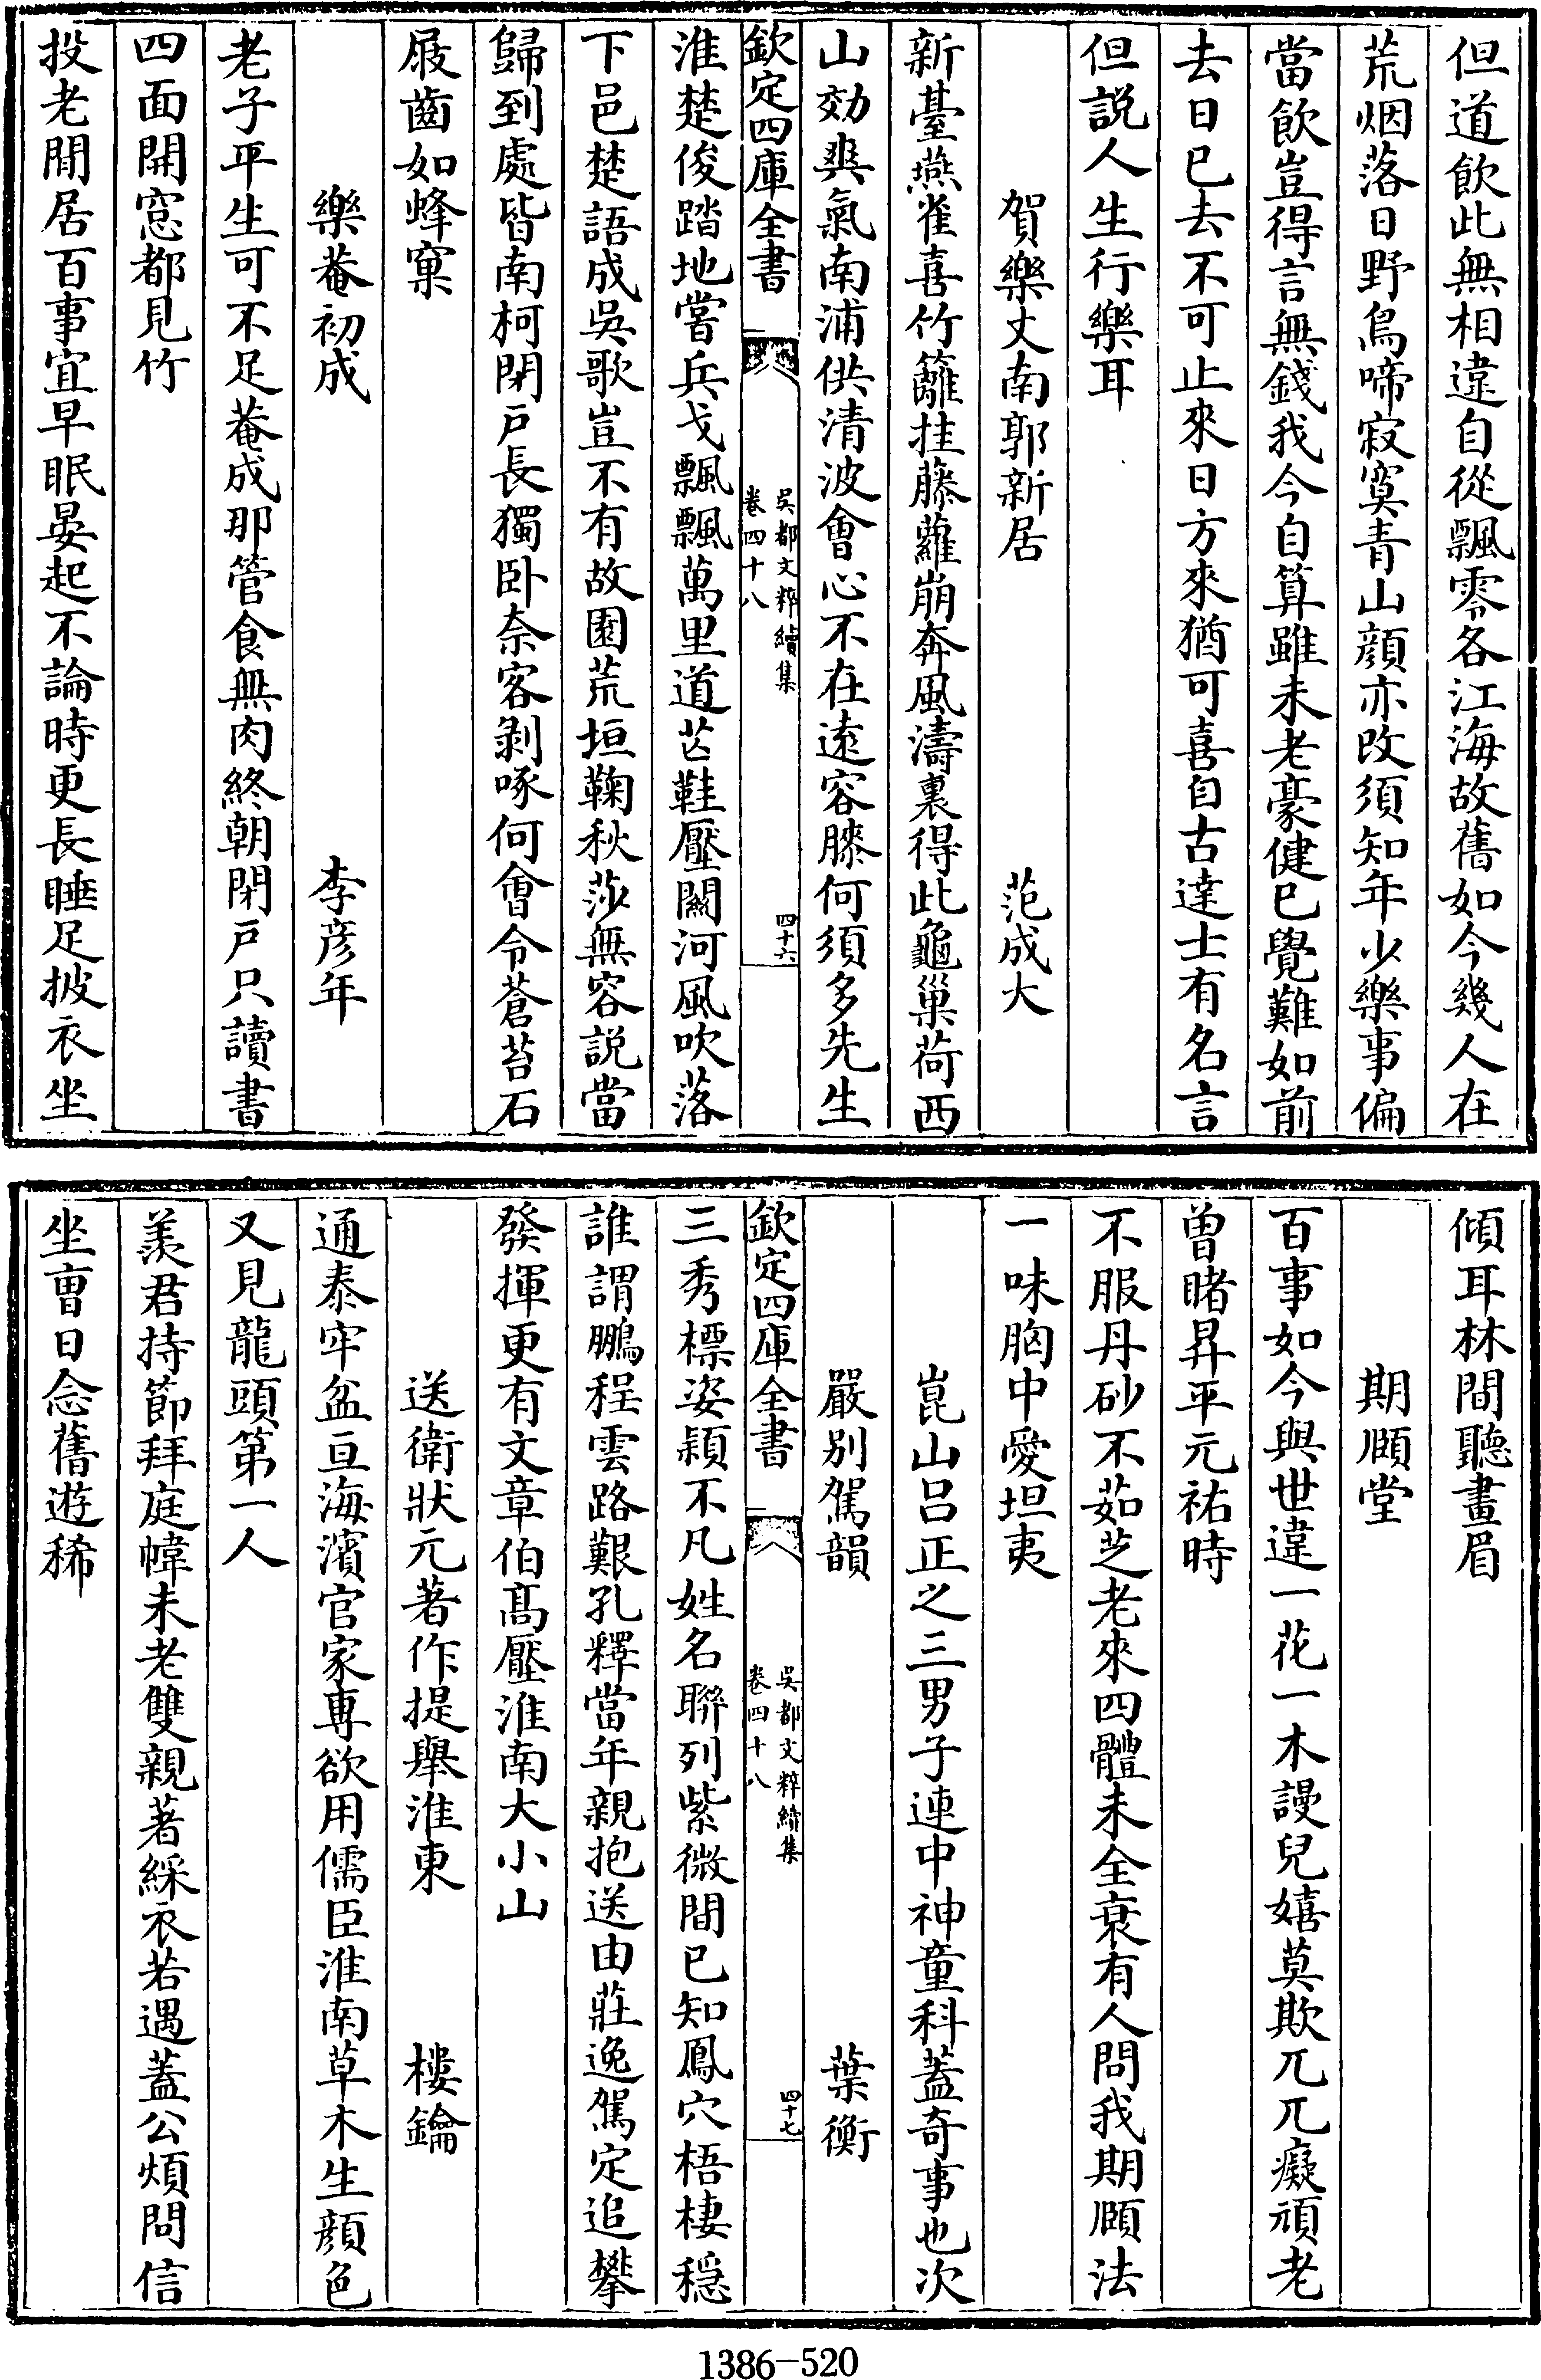 但道飲此無相違自從飄零各江海故舊如今幾人在
荒烟落日野鳥啼寂寞青山顔亦改須知年少樂事偏
當飲豈得言無錢我今自算雖未老豪健已覺難如前
去日已去不可止來日方來猶可喜自古達士有名言
但説人生行樂耳
賀樂丈南郭新居 范成大
新臺燕雀喜竹籬挂藤蘿崩奔風濤裏得此龜巢荷西
山効爽氣南浦供清波會心不在逺容膝何須多先生
欽定四庫全書 吳都文粹續集 卷四十八 四十六
淮楚俊踏地嘗兵戈飄飄萬里道芒鞋壓關河風吹落
下邑楚語成吳歌豈不有故園荒垣鞠秋莎無容説當
歸到處皆南柯閉戸長獨卧奈客剝啄何會令蒼苔石
屐齒如蜂窠
樂菴初成 李彦年
老子平生可不足菴成那管食無肉終朝閉戸只讀書
四面開窓都見竹
投老閒居百事宜早眠晏起不論時更長睡足披衣坐
傾耳林間聽畫眉
期頤堂
百事如今與世違一花一木謾兒嬉莫欺兀兀癡頑老
曽睹昇平元祐時
不服丹砂不茹芝老來四體未全衰有人問我期頤法
一味胸中愛坦夷
崑山呂正之三男子連中神童科蓋奇事也次
嚴别駕韻 葉衡
欽定四庫全書 吳都文粹續集 卷四十八 四十七
三秀標姿頴不凡姓名聯列紫微間已知鳳穴梧棲穏
誰謂鵬程雲路艱孔釋當年親抱送由莊逸駕定追攀
發揮更有文章伯髙壓淮南大小山
送衛狀元著作提舉淮東 樓鑰
通泰牢盆亘海濱官家専欲用儒臣淮南草木生顔色
又見龍頭第一人
羨君持節拜庭幃未老雙親著綵衣若遇蓋公煩問信
坐曺日念舊遊稀
1386-520